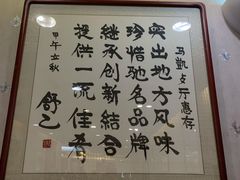 马凯歺厅惠存
突出地方风味
珍惜驰名品牌
继承创新结合
提供一流佳肴
甲午立秋
舒乙